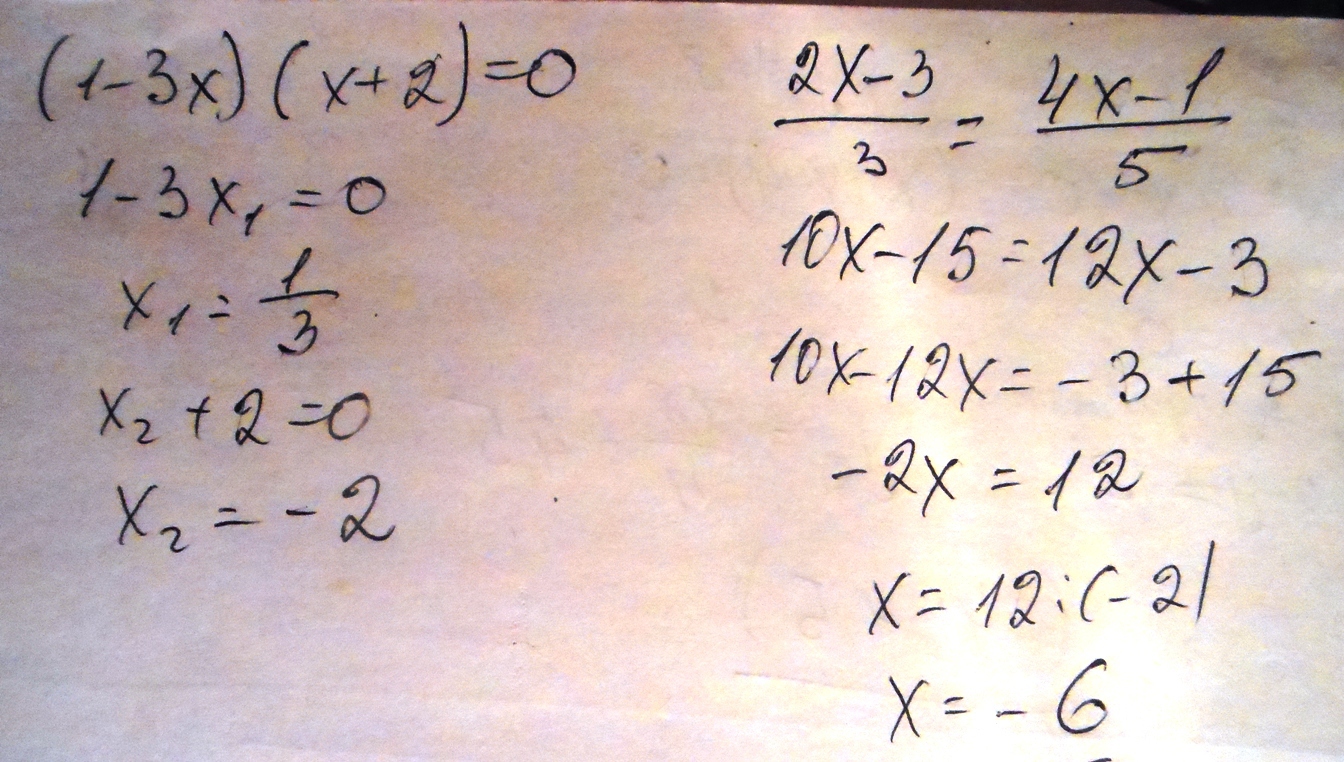 (1-3x)(x+2)=0
1-3x₁=0
x₁=1/3
x₂+2=0
x₂=-2
(2x-3)/3=(4x-1)/5
10x-15=12x-3
10x-12x=-3+15
-2x=12
x=12:(-2)
x=-6